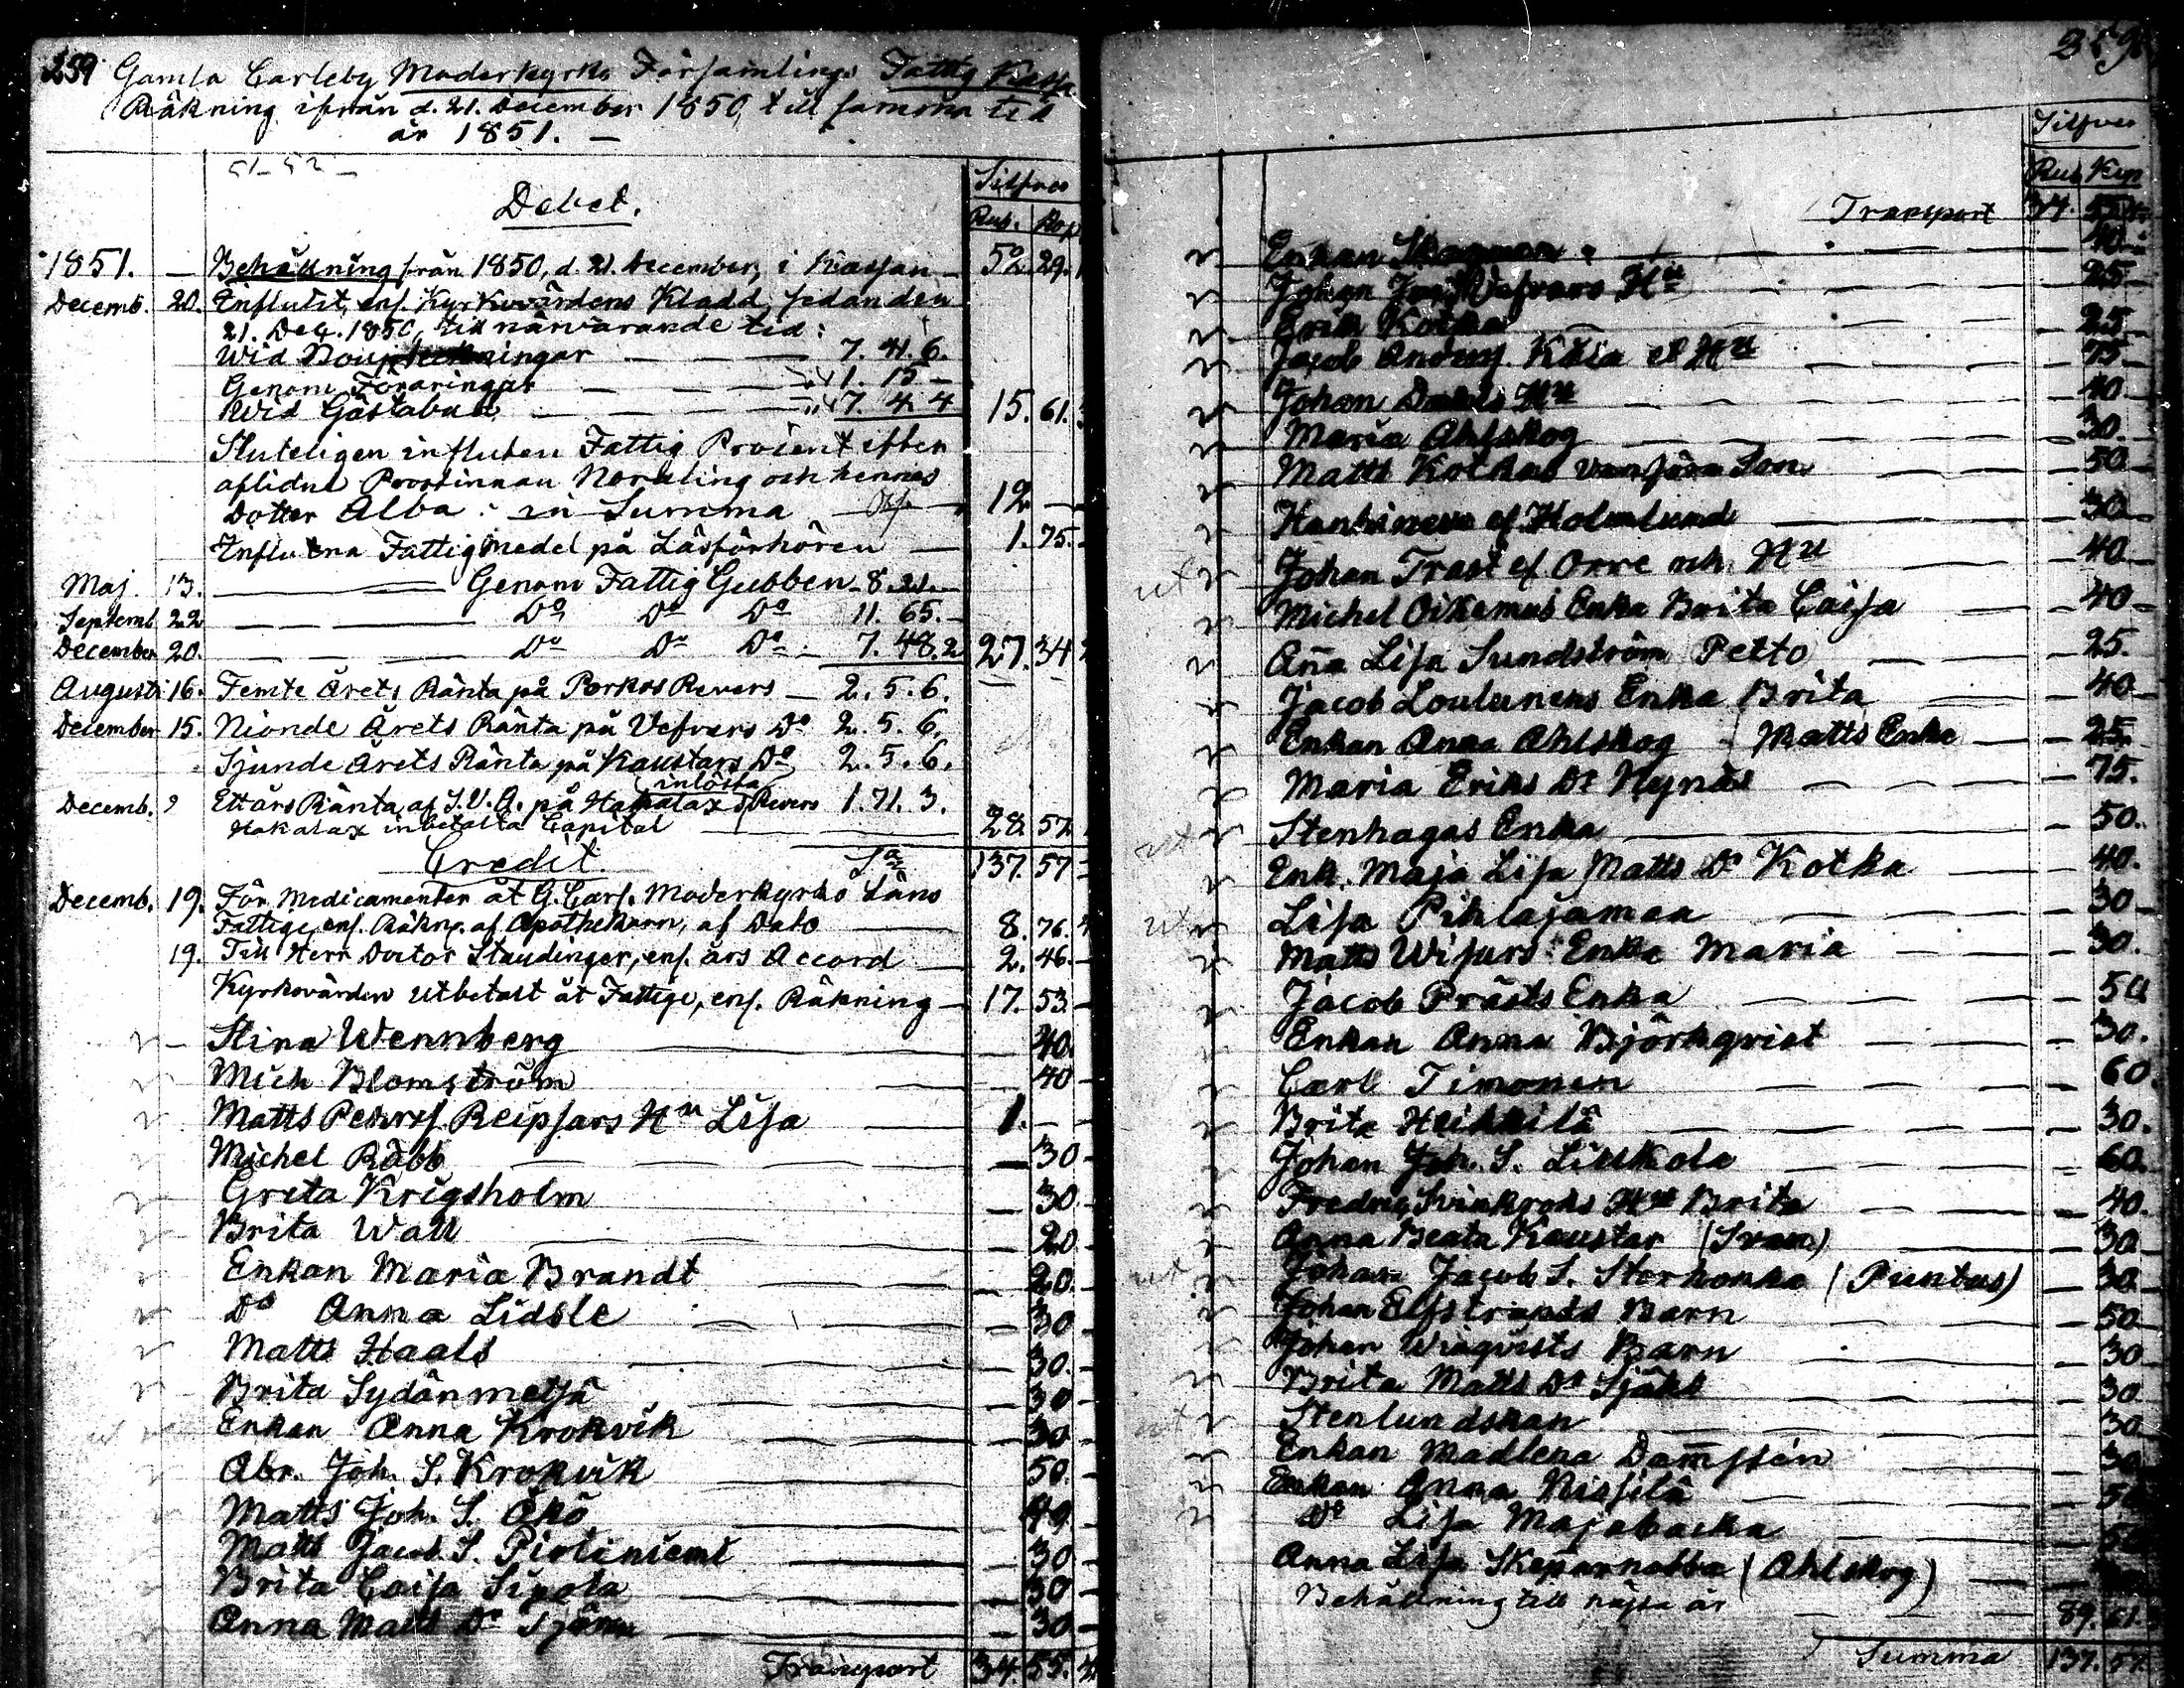 259 Gamla Carleby Moderkyrko Församlings Fattig Kassa
Räkning ifrån d. 21. December 1850, till samma tid
år 1851. —
51-52 —
Silfver
Debet.
Rub. Kop
1851. — Behållning från 1850, d. 21. December, i Kassan — 52. 29.
Decemb. 20. Influtit, enl. Kyrkovärdens Kladd, sedan den
21. Dec. 1850, till närvarande tid:
Wid 7. 41. 6.
Genom Föräringar 1. 15 —
Wid Gästabud 7. 4. 4 15. 61.
Sluteligen influten Fattig Procent efter
aflidne Prostinnan och hennes
Dotter Alba i en Summa 12 —
Influtna Fattig Medel på Läsförhören — 1. 75. —
Maj. 13. — Genom Fattig Gubben — 8. 21. —
Septemb. 22 — Do Do Do 11. 65. —
December 20. — Do Do Do — 7. 48. 2 27. 34
Augusti 16. Femte Årets Ränta på Porkos Revers — 2. 5. 6.
December 15. Nionde Årets Ränta på Vefvars Do 2. 5. 6.
Sjunde Årets Ränta på Kaustars Do 2. 5. 6.
inlösta
Decemb. 9 Ett års Ränta af S.V.Q. på Hakalax Revers 1. 71. 3.
Hakalax inbetalta Capital — 28. 57.
Credit. Sa 137. 57 —
Decemb. 19. För Medicamenter åt G. Carl. Moderkyrko Läns
Fattige, enl. Räkng. af Apothekarn, af Dato — 8. 76.
19. Till Herr Doctor Staudinger, enl. års Accord — 2. 46. —
Kyrkovärden utbetalt åt Fattige, enl. Räkning — 17. 53. —
Stina Wennberg — 40.
Mich Blomström — 40 —
Matts Pehrss. Reipsars Hu Lisa — 1. — —
Michel Räbb — 30 —
Greta Krigsholm — 30 —
Brita Wall — 20 —
Enkan Maria Brandt — 20. —
Do Anna Lidsle — 30 —
Matts Haals — 30. —
Brita Sydänmetsä — 30 —
Enkan Anna Krokvik — 30 —
Abr. Joh. S. Krokvik — 50. —
Matts Joh. S. Åkö — 40 —
Matts Jacob. S. Piotiniemi — 30 —
Brita Caisa Sipola — 30 —
Anna Matts Dr — 30 —
Transport 34. 55.
259
Silfver
Rub Kop
Transport 34. 55
Enkan — 40 —
Johan Vefvars Hu — 25 —
Erik Kotka — 25 —
Jacob Anderss. Käia et Hu — 75 —
Johan Hu — 40 —
Maria Ahlskog — 30. —
Matts Kotkas vanföra Son — 50 —
af Holmlund — 30 —
ut Johan Trast af Orre och Hu — 40 —
Michel Oikemus Enka Brita Caisa — 40 —
Anna Lisa Sundström Petto — 25.
Jacob Loulunens Enka Brita — 40 —
Enkan Anna Ahlskog Matts Enka — 25.
Maria Eriks Dr Hynäs — 75.
ut Stenhagas Enka — 50.
Enk. Maja Lisa Matts Dr Kotka — 40.
ut Lisa Pihlajamaa — 30 —
Matts Wisurs Enka Maria — 30.
Jacob Prästs Enka — 50
Enkan Anna Björkqvist — 30.
Carl Timonen — 60.
Brita Heikkilä — 30.
Johan Joh. S. Liukola — 60.
Fredric Svinkroks Hu Brita — 40.
Anna Beata Kaustar (Svan) — 30 —
ut Johan Jacob S. Storkonka (Puntus) — 30.
Johan Elfstrands Barn — 50 —
Johan Wiiqvists Barn — 30
Brita Matts Dr — 30.
ut Stenlundskan — 30
Enkan Madlena Damssén — 30
Enkan Anna Nissilä — 50
Do Lisa Majabacka — 50
Anna Lisa Skeparnabba (Ahlskog)
Behållning till nästa år — 89. 61.
Summa 137. 57